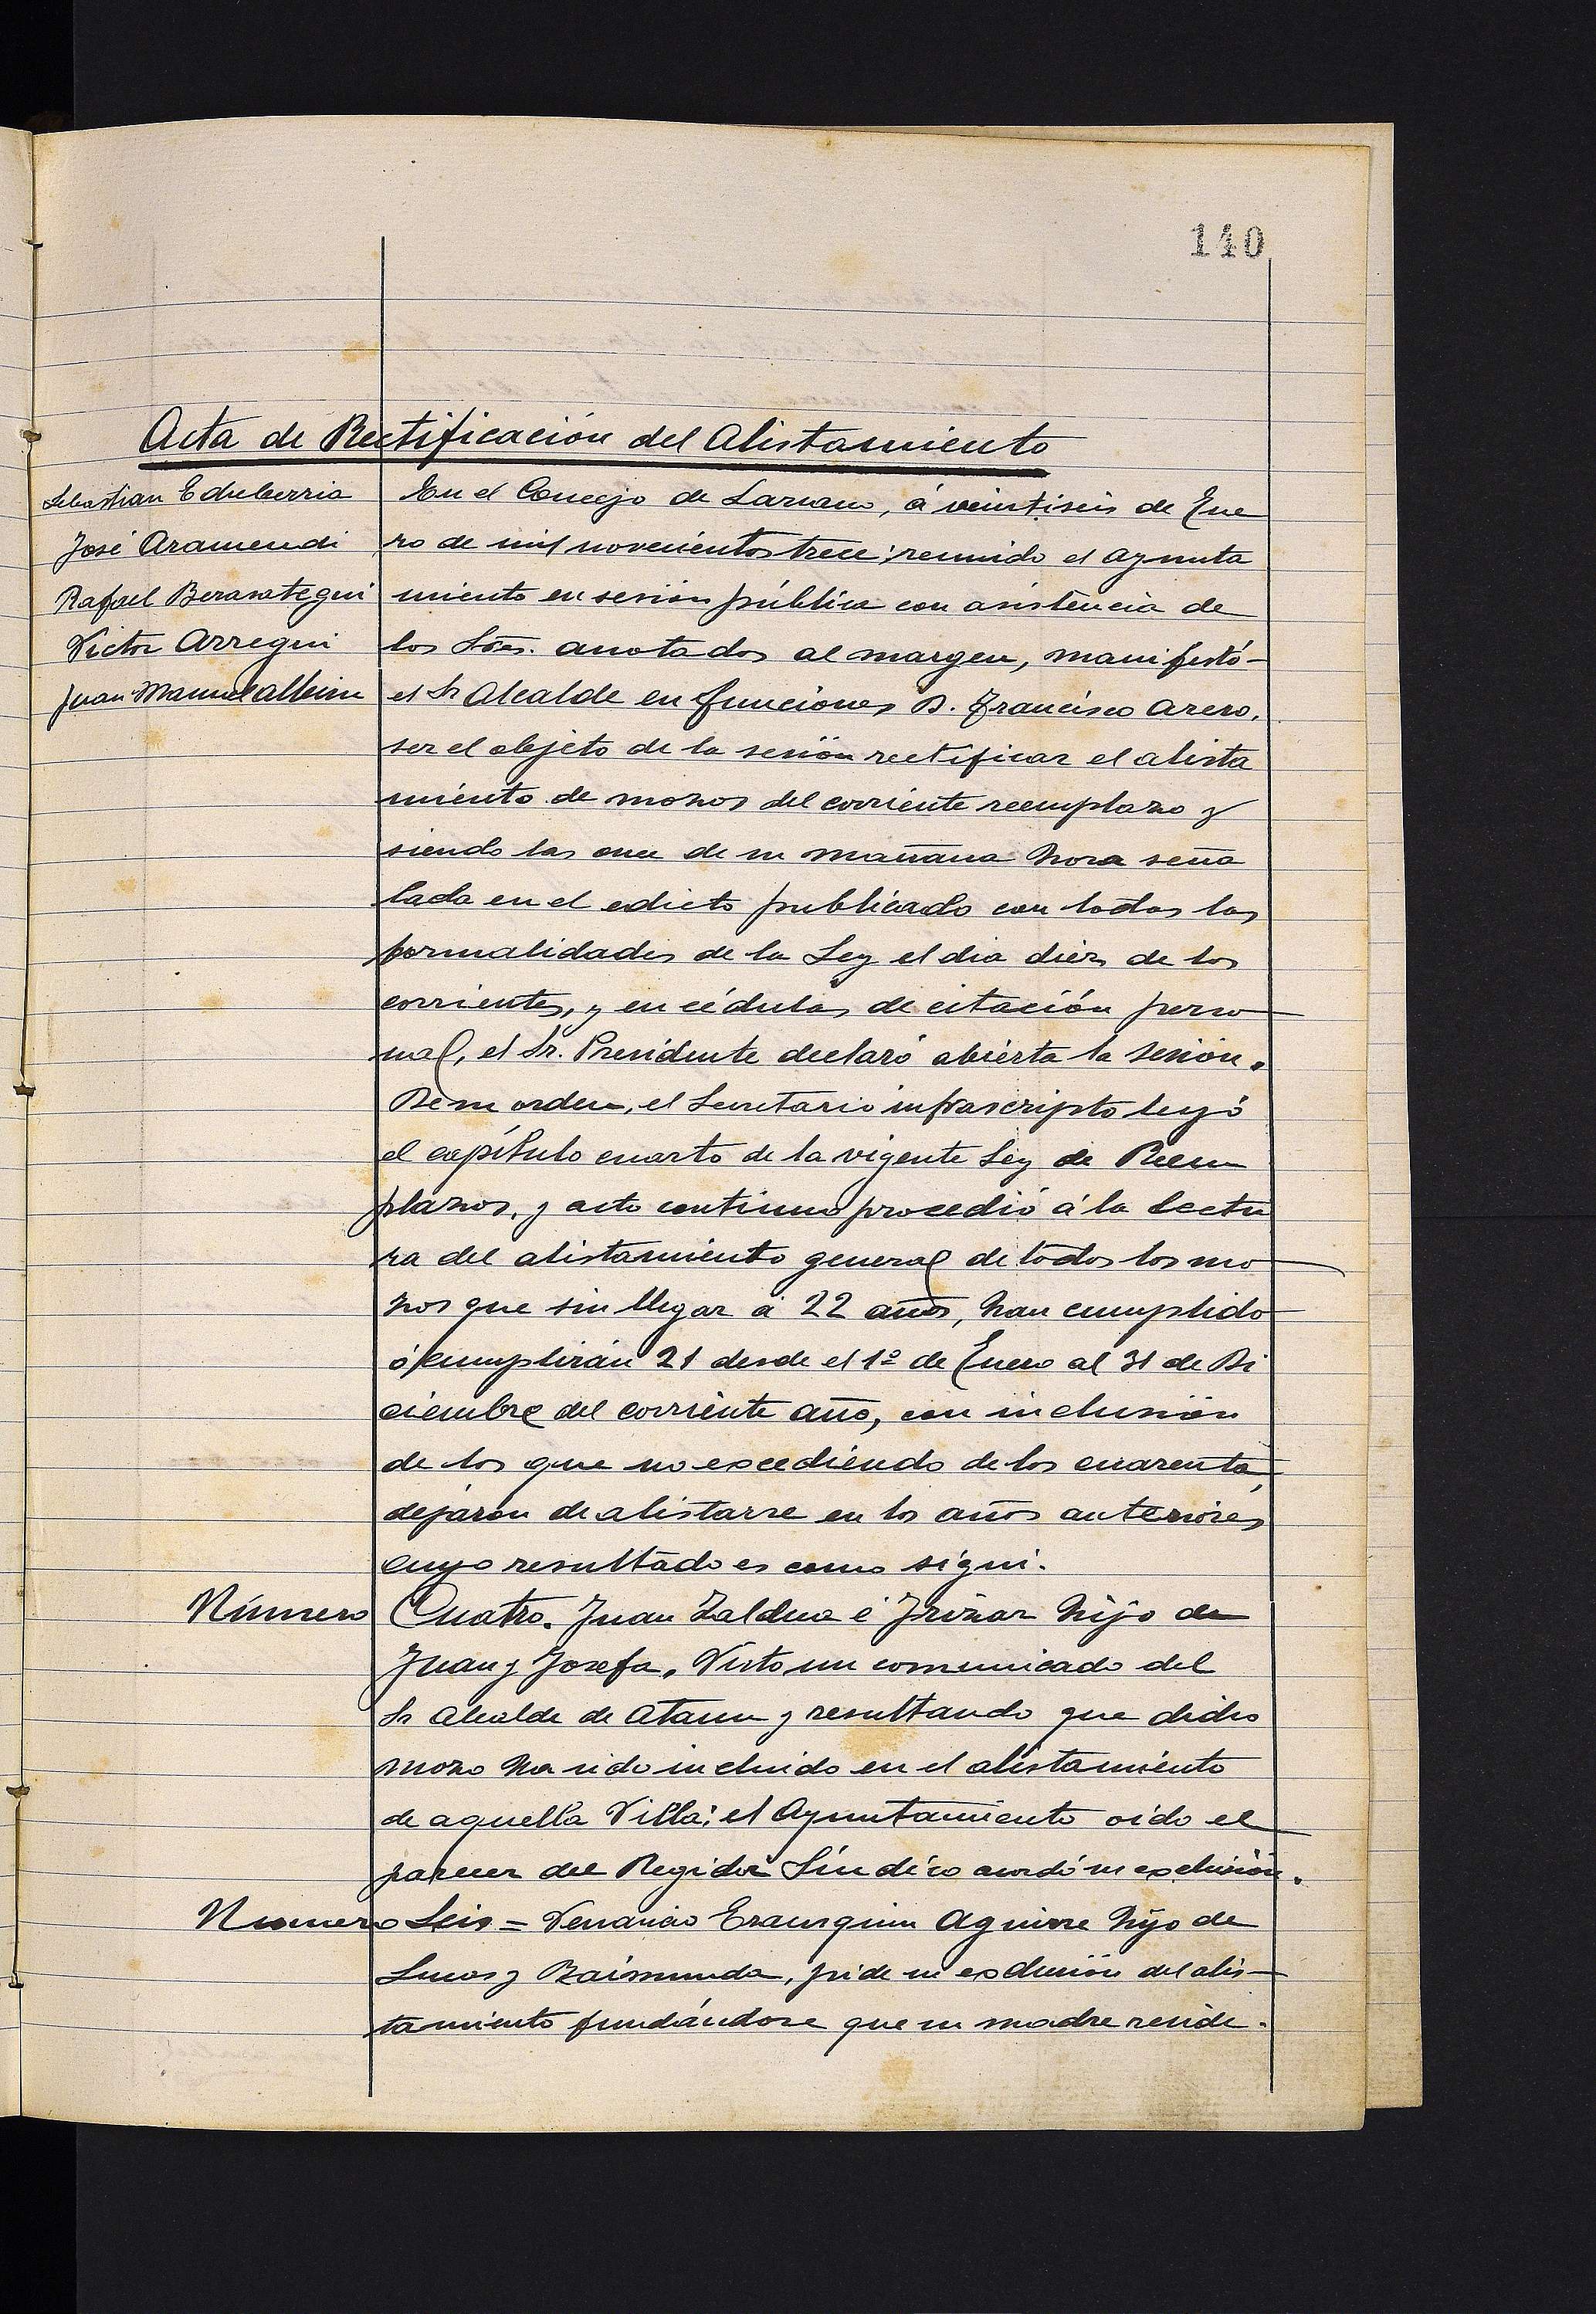 140
Acta de Rectificación del Alistamiento
Sebastian Echeberria
José Aramendi
Rafael Berasategui
Victor Arregui
Juan Manuel Albisu
En el Concejo de Larraun, á veintiseis de Ene
ro de mil novecientos trece; reunido el Ayunta
miento en sesión pública con asistencia de
los Sres. anotados al margen, manifestó-
el Sr Alcalde en funciones D. Francisco Arero.
ser el objeto de la sesión rectificar el alista
miento de mozos del corriente reemplazo y
siendo las once de su mañana hora seña
lada en el edicto publicado con todas las
formalidades de la Ley el dia diez de los
corrientes, y en cédulas de citación perso
nal, el Sr. Presidente declaró abierta la sesión.
De su orden, el Secretario infrascripto leyó
el capítulo cuarto de la vigente Ley de Reem
plazos, y acto continuo procedió á la lectu
ra del alistamiento general de todos los mo
zos que sin llegar á 22 años, han cumplido
ó cumplirán 21 desde el 1º de Enero al 31 de Di
ciembre del corriente año, con inclusión
de los que no excediendo de los cuarenta,
dejaron de alistarse en los años anteriores
cuyo resultado es como sigui.
Número Cuatro. Juan Zaldua é Irizar hijo de
Juan y Josefa. Visto un comunicado del
Sr Alcalde de Ataun y resultando que dicho
mozo ha sido incluido en el alistamiento
de aquella Villa; el Ayuntamiento oido el
parecer del Regidor Síndico acordó su exclusión.
Numero Seis = Venancio Erausquin Aguirre hijo de
Lucas y Raimunda, pide su exclusión del alis-
tamiento fundándose que su madre reside.